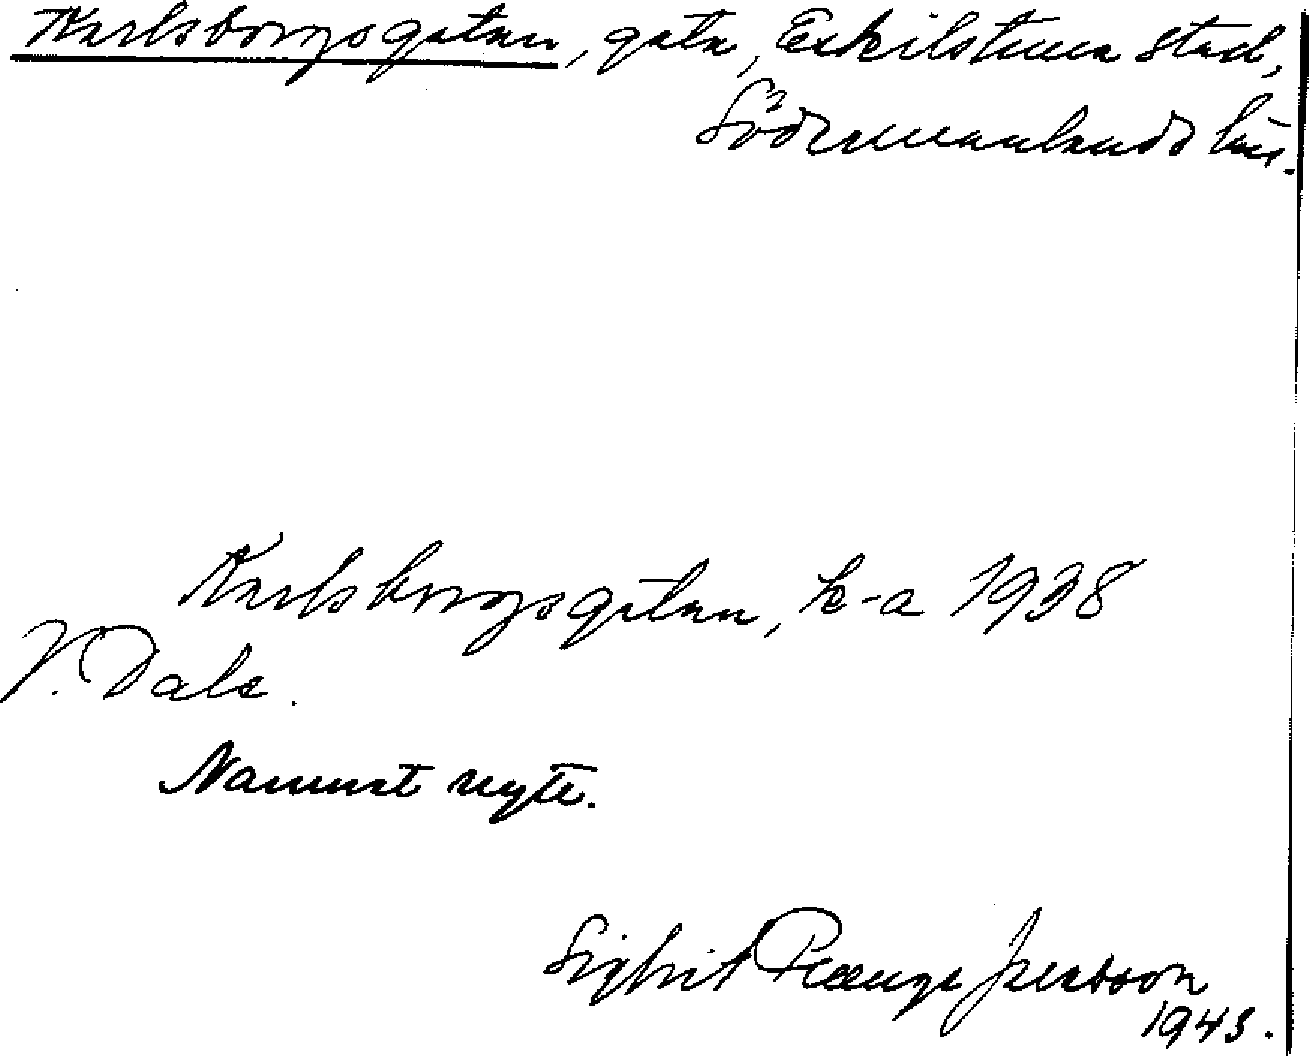 Karlsborgsgatan, gata, Eskilstuna stad,
Södermanlands län.
Karlsborgsgatan, k-a 1938
V. Dala.
Namnet nytt.
Sigbrit Plænge Jacobson
1943.